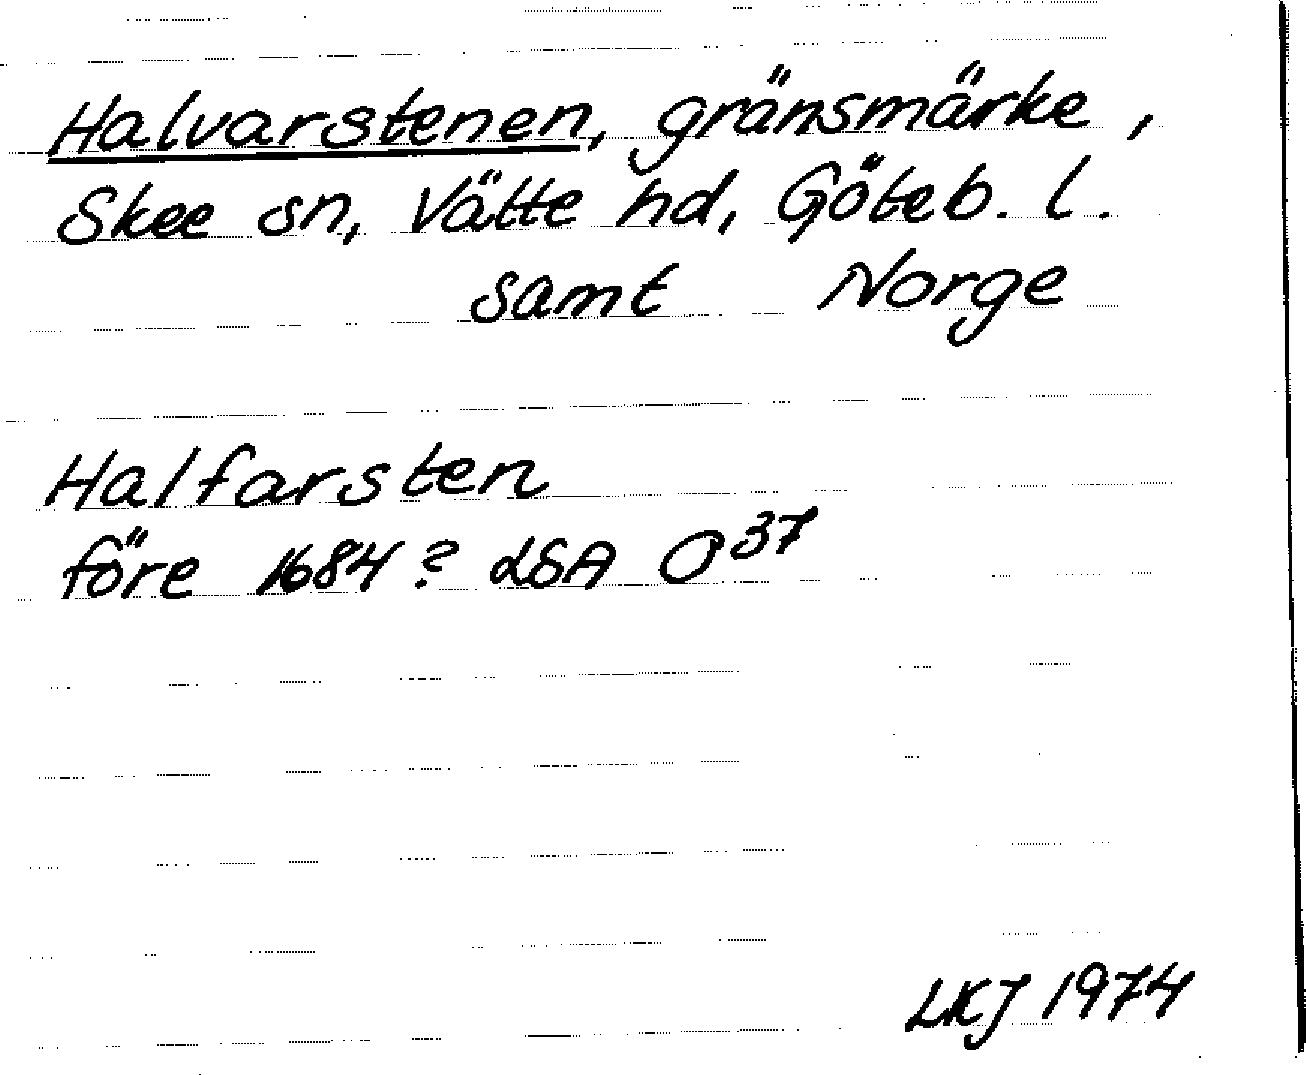 Halvarstenen, gränsmärke,
Skee sn, Vätte hd, Göteb. l.
samt Norge
Halfarsten
före 1684? LSA O³⁷
LKJ 1974